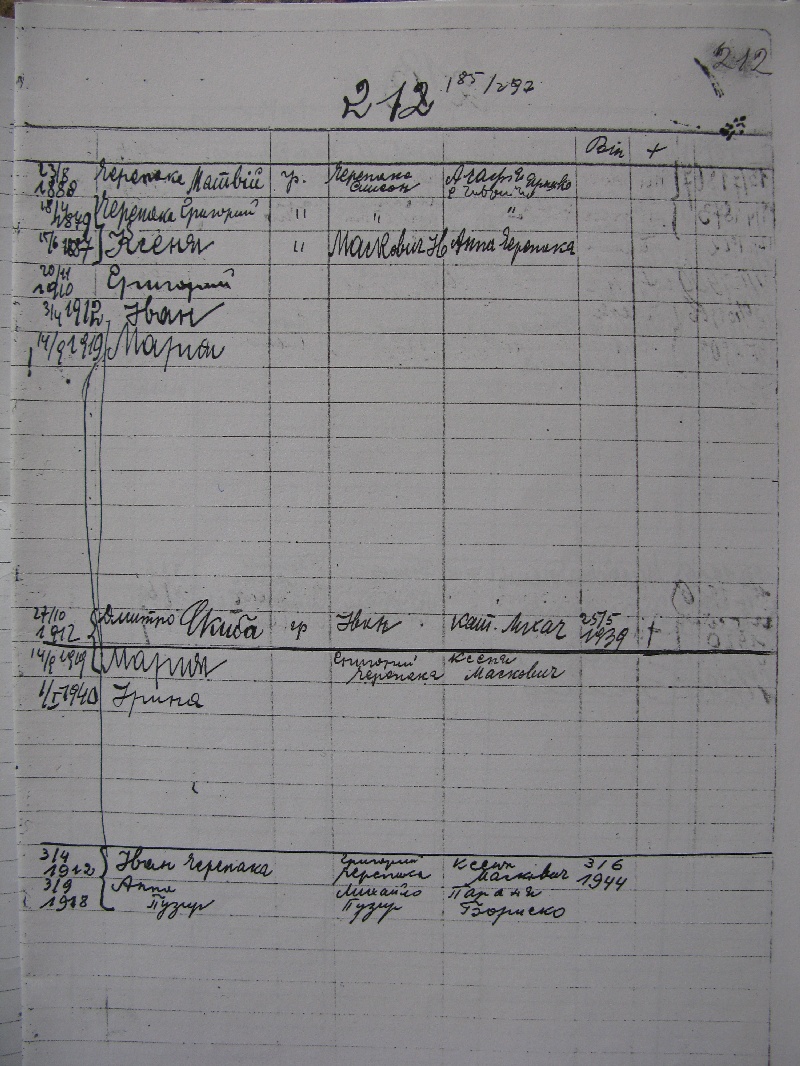 212
212 185/292
Він +
23/8 1888 Черепака Матвій гр. Черепака Симеон Агафія
18/4 1879 Черепака Григорий " " "
15/6 1887 Ксеня " Маскович Н Анна Черепака
20/11 1910 Григорий
3/4 1912 Іван
14/9 1919 Мария
27/10 1912 Дмитро Скиба гр Іван Кат. Лихач 25/5 1939 +
14/9 1919 Мария Григорий Черепака Ксеня Маскович
1/I 1940 Ірина
3/4 1912 Іван Черепака Григорий Черепака Ксеня Маскович 3/6 1944
3/9 1918 Анна Пузир Михайло Пузир Параня Бориско